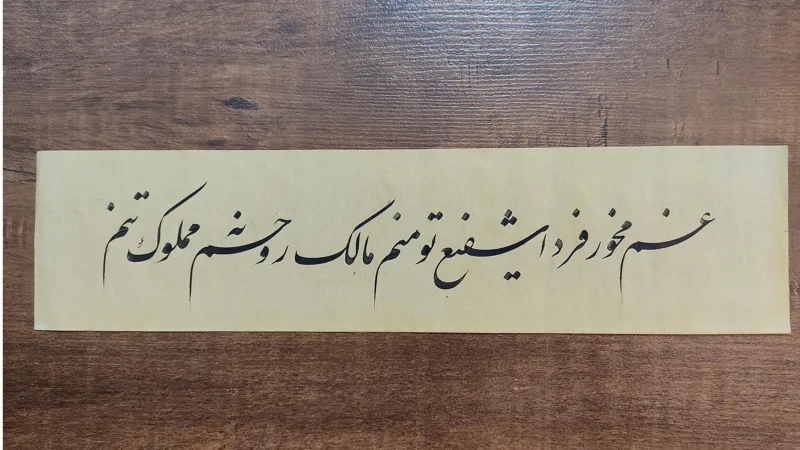 غم مخور فردا شفیع تو منم مالک روحم نه مملوک تنم